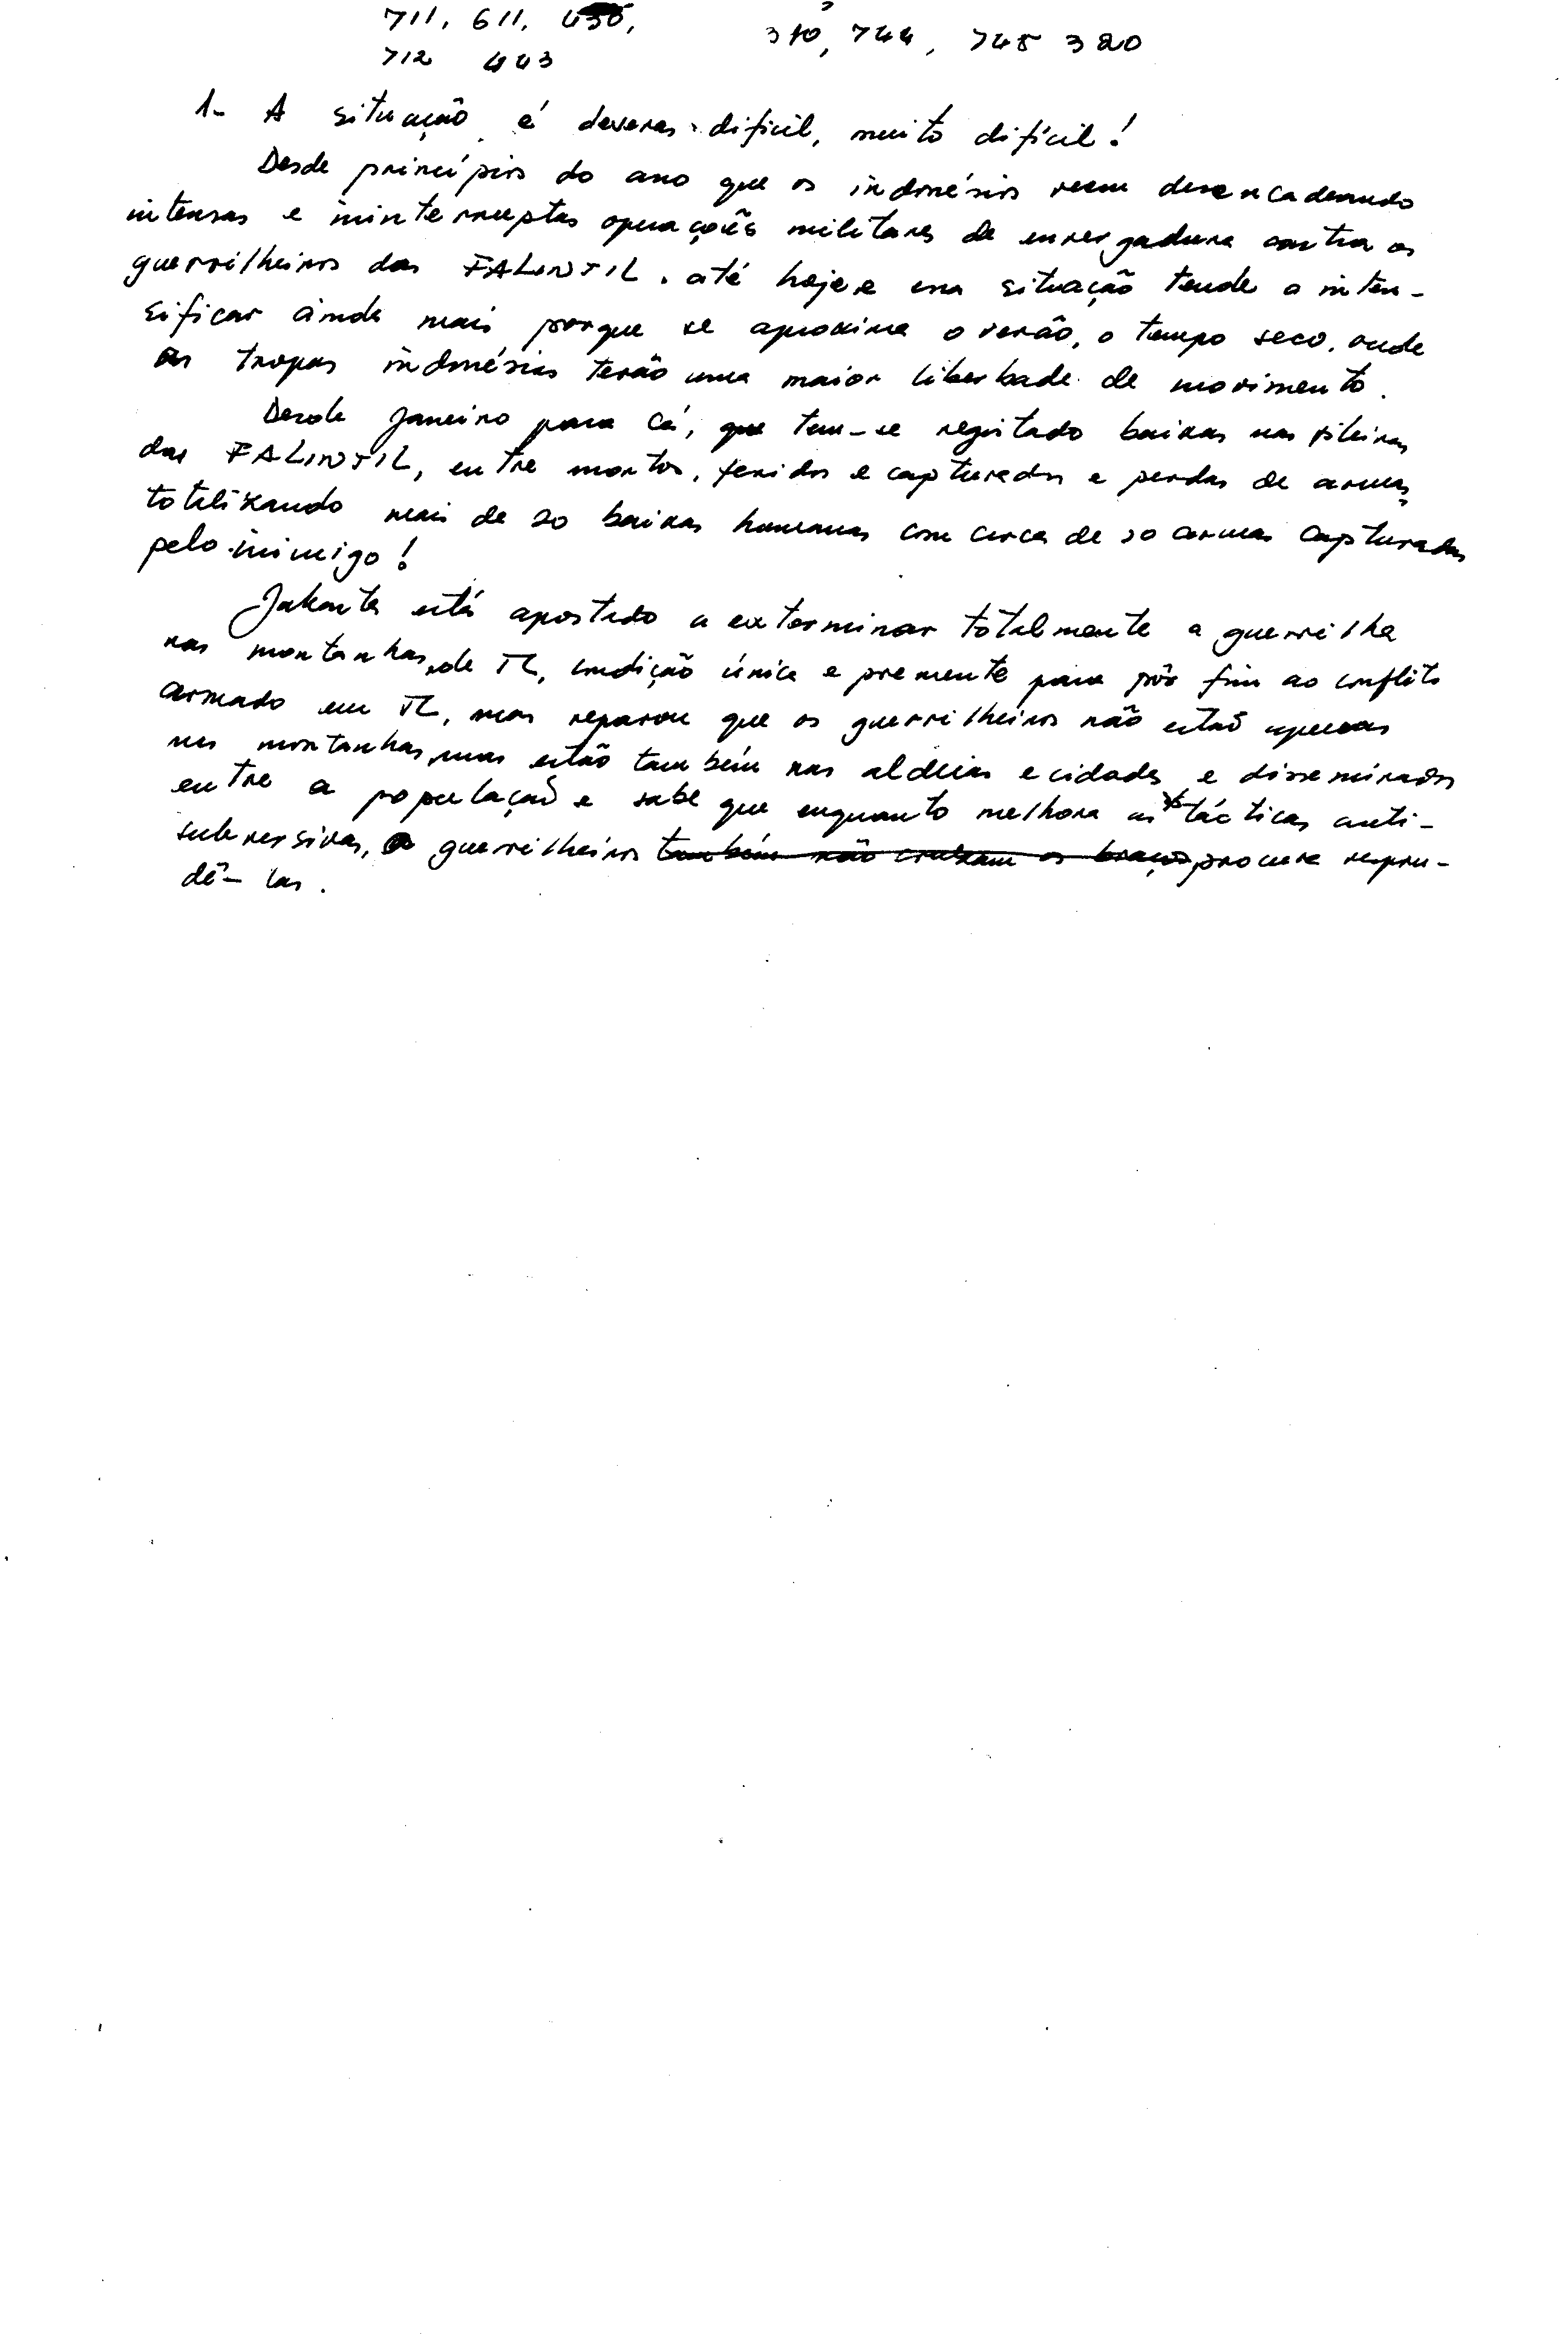 711, 611, 450,    310, 744, 745 320
712 443
1- A situação é deveras difícil, muito difícil!
Desde princípios do ano que os indonésios veem desencadeando
intensas e ininterruptas operações militares de envergadura contra os
guerrilheiros das FALINTIL. até hoje e essa situação tende a inten-
sificar ainda mais porque se aproxima o verão, o tempo seco, onde
as tropas indonésias terão uma maior liberbade de movimento.
Desde Janeiro para cá, que tem-se registado baixas nas fileiras
das FALINTIL, entre mortos, feridos e capturados e perdas de armas,
totalizando mais de 20 baixas humanas com cerca de 20 armas capturadas
pelo inimigo!
Jakarta está apostado a exterminar totalmente a guerrilha
nas montanhas de TL, condição única e premente para pôr fim ao conflito
armado em TL, mas reparou que os guerrilheiros não estão apenas
nas montanhas, mas estão também nas aldeias e cidades e disseminados
entre a população e sabe que enquanto melhora as tácticas anti-
subversivas, a guerrilheiros também não cruzam os braços procura
dê-las.